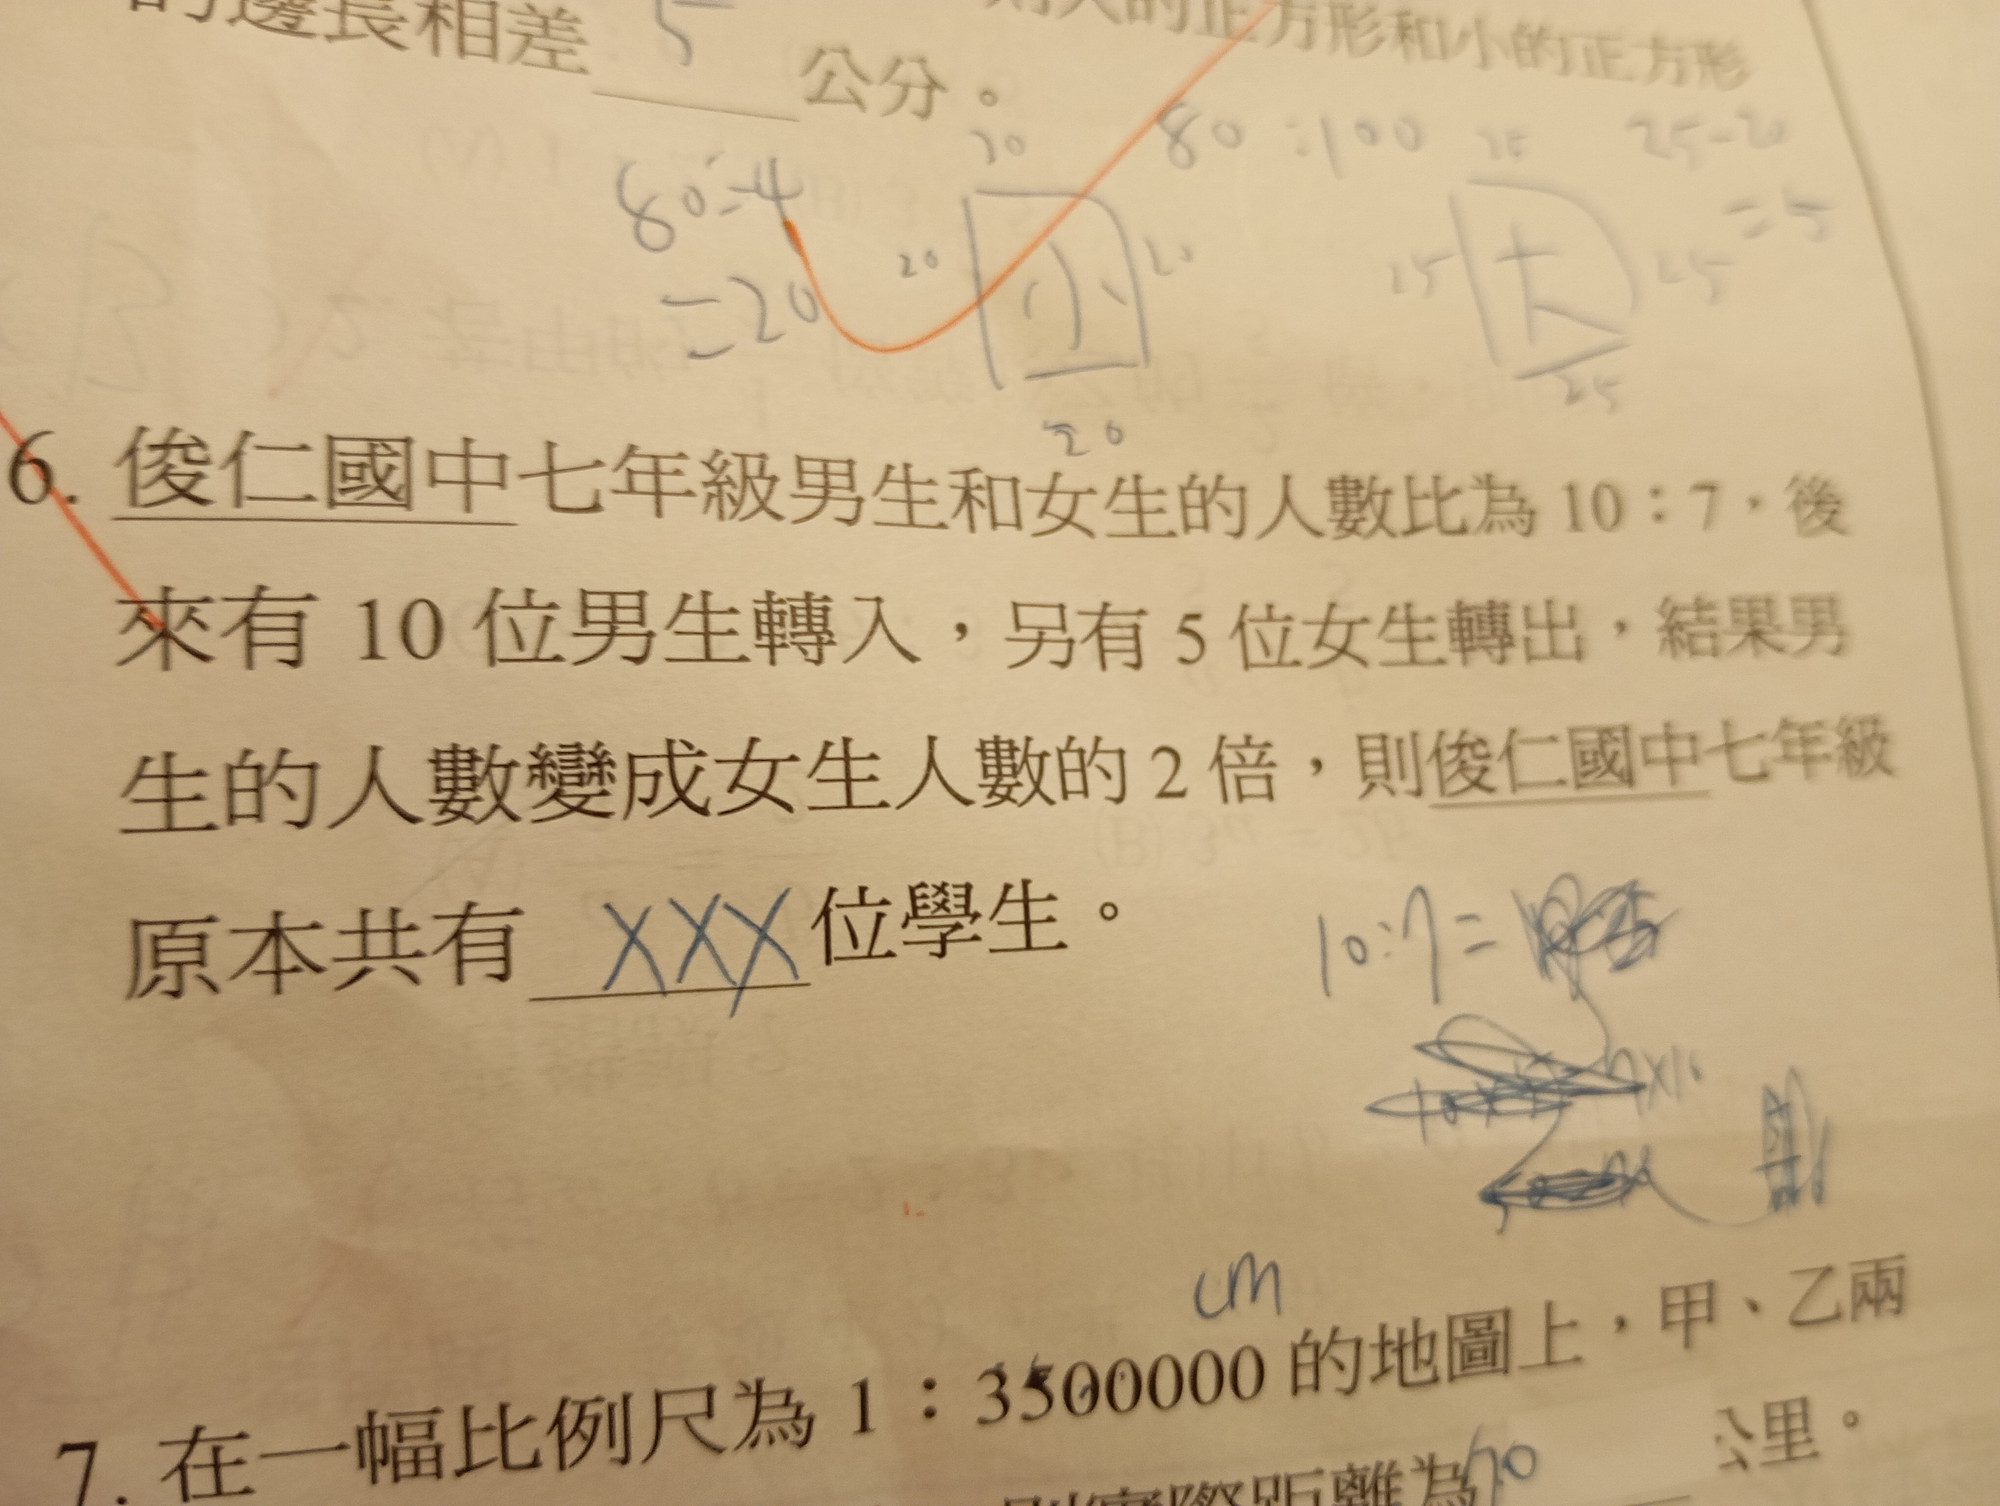 的邊長相差 5 公分。
則大的正方形和小的正方形
80÷4
=20
20
20
小
20
20
80:100
25
25
大
25
25
25-20
=5
6. 俊仁國中七年級男生和女生的人數比為 10:7,後
來有 10 位男生轉入,另有 5 位女生轉出,結果男
生的人數變成女生人數的 2 倍,則俊仁國中七年級
原本共有 XXX 位學生。
10:7=
cm
7. 在一幅比例尺為 1:3500000 的地圖上,甲、乙兩
實際距離為 70 公里。